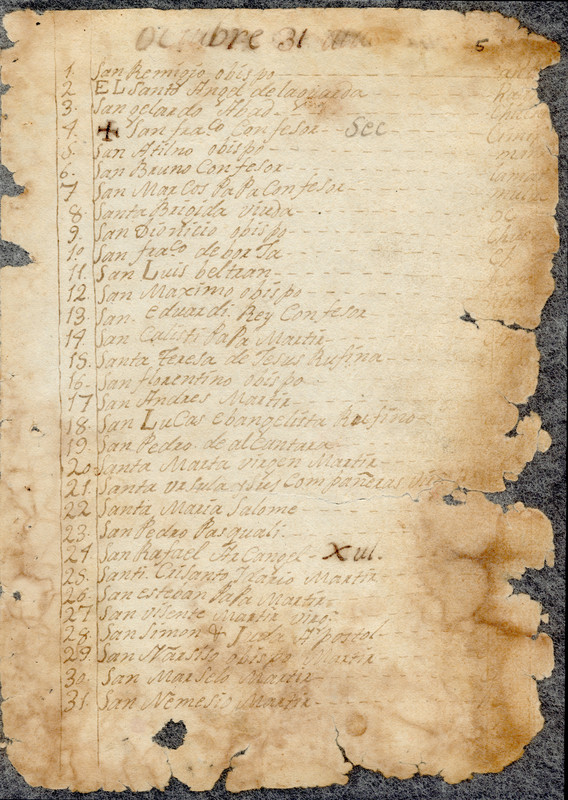 Octubre 31
5
1. San Remigio obispo
2 EL Santo Angel de laguarda
3. San gelardo Abad
4. + San fraco Confesor Sec
5. San Atilno obispo
6. San Bruno Confesor
7 San Marcos PaPa Confesor
8 Santa Brigida viuda
9. San Dionicio obispo
10 San fraco de borJa
11. San Luis beltran
12. San Maximo obispo
13. San. Eduardi. Rey Confesor
14 San Calisti PaPa Martir
15. Santa Teresa de Jesus Rufina
16. San florentino obispo
17 San Andres Martir
18. San LuCas ebangelista Rufino
19. San Pedro de alCantara
20 Santa Marta virgen Martir
21. Santa ursula isus Compañeras
22 Santa Maria Salome
23. San Pedro Pasquali
24 San Rafael ArCangel Xul.
25. Santi. Crisanto Martir
26 San esteban PaPa Martir
27 San visente Martir
28. San Simon Apostol
29. San Narsiso obispo Martir
30. San Marselo Martir
31. San Nemesio Martir